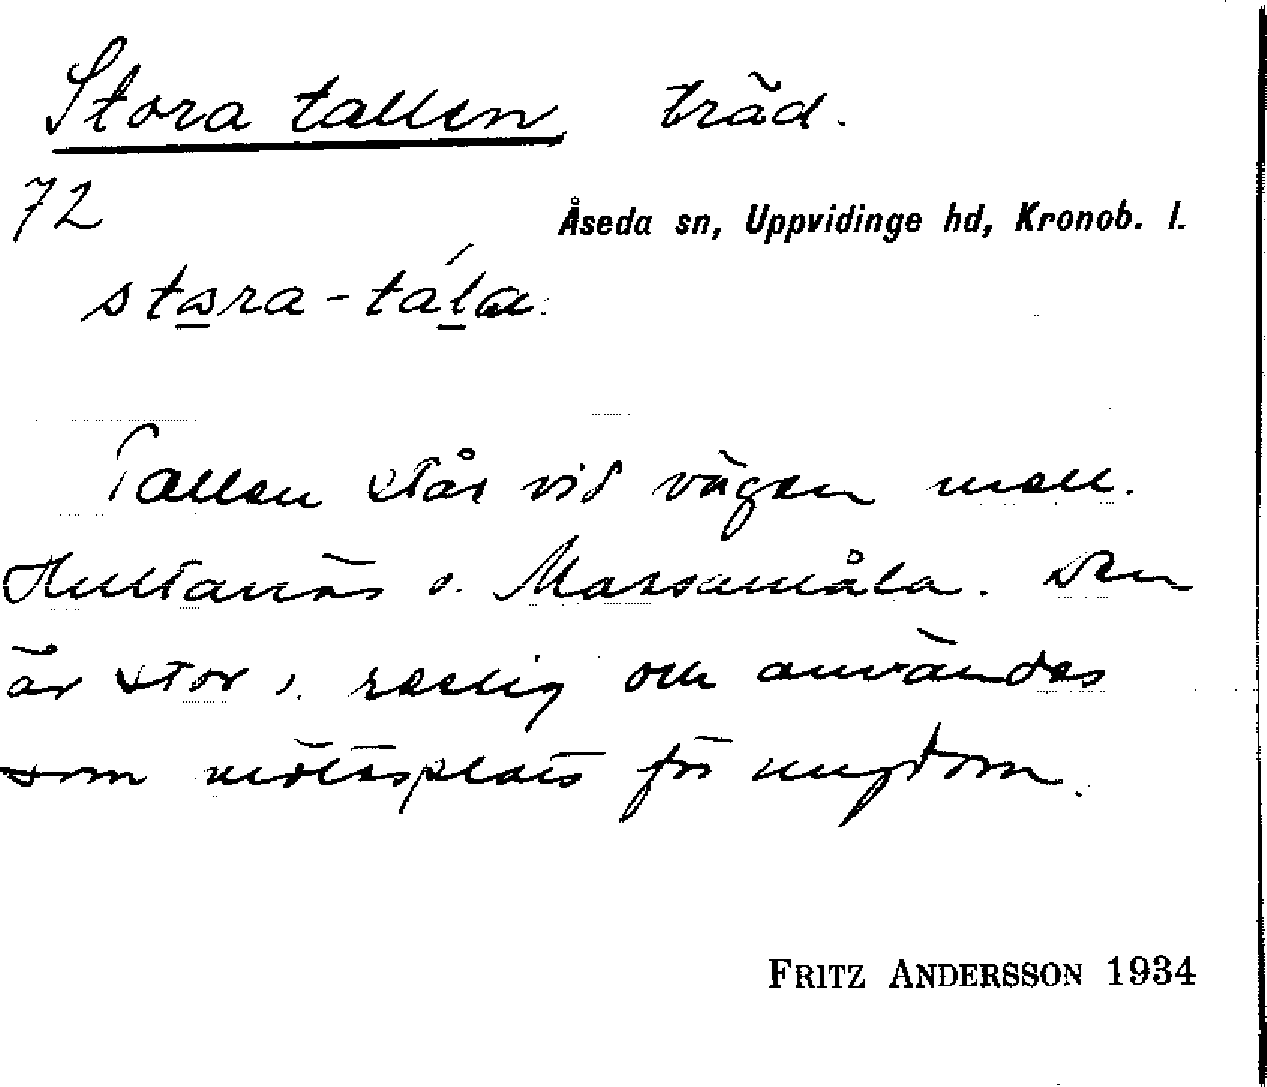 Stora tallen träd.
72
Åseda sn, Uppvidinge hd, Kronob. l.
stara-tála.
Tallen står vid vägen mell.
Hultanäs o. Massamåla. Den
är stor o. raslig och användes
som mötesplats för ungdom.
FRITZ ANDERSSON 1934